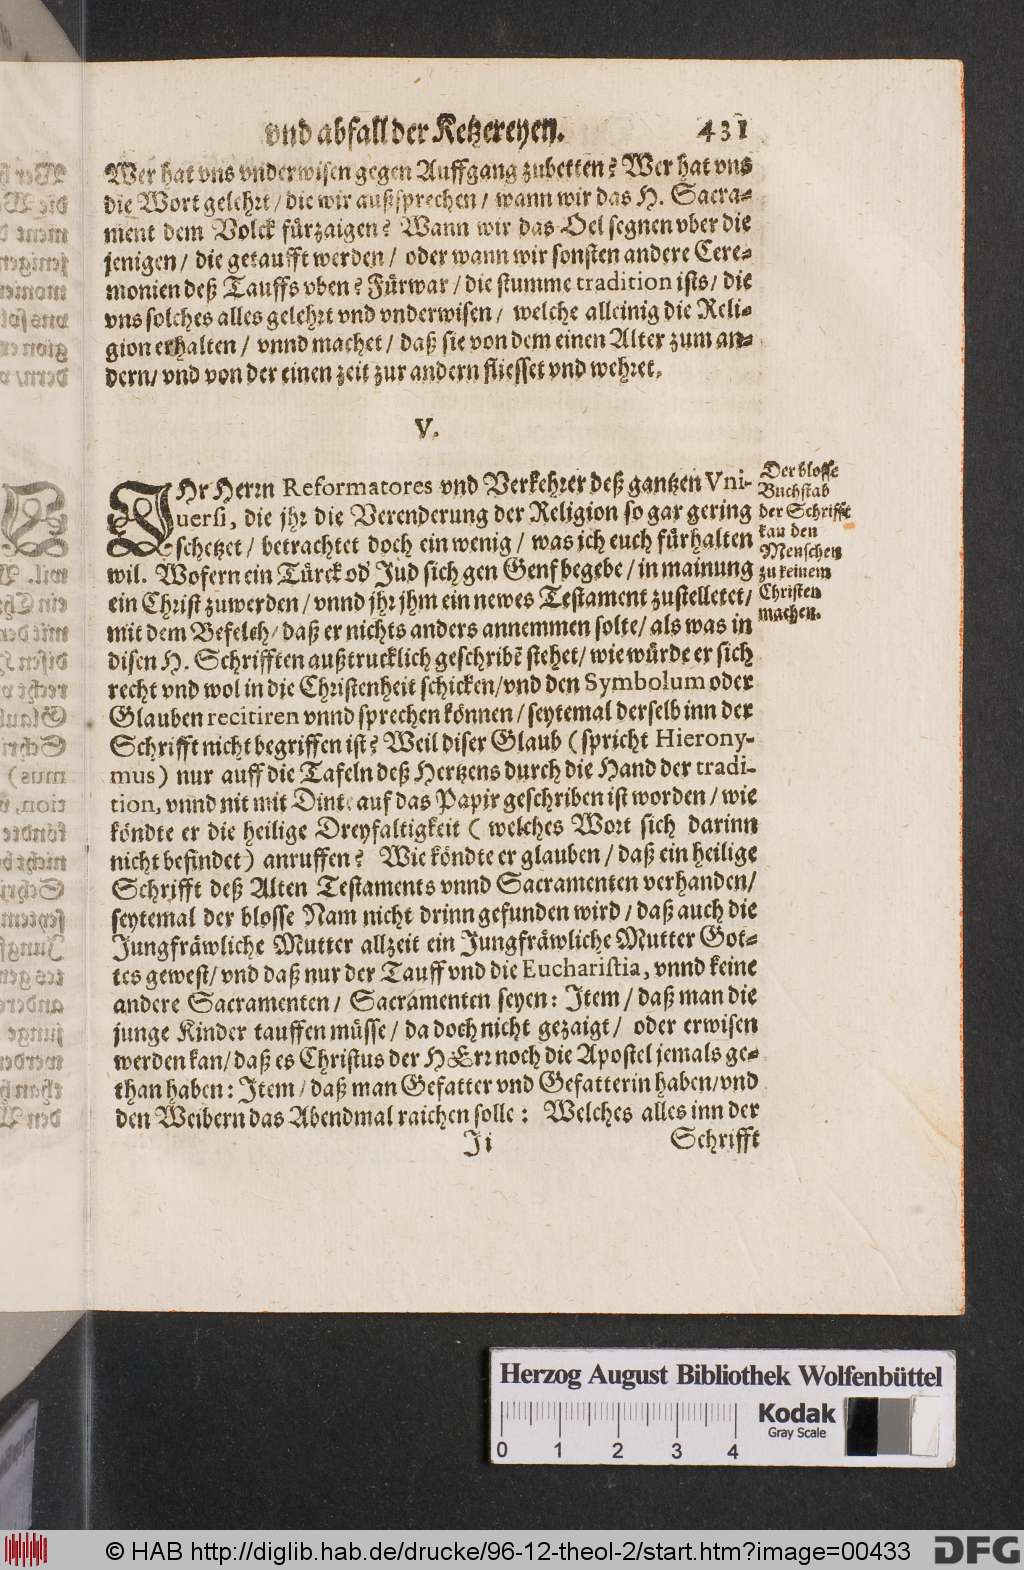 vnd abfall der Ketzereyen. 431
Wer hat vns vnderwisen gegen Auffgang zubetten? Wer hat vns
die Wort gelehrt / die wir außsprechen / wann wir das H. Sacra-
ment dem Volck fürzaigen? Wann wir das Oel segnen vber die
jenigen / die getaufft werden / oder wann wir sonsten andere Cere-
monien deß Tauffs vben? Fürwar / die stumme tradition ists / die
vns solches alles gelehrt vnd vnderwisen / welche alleinig die Reli-
gion erhalten / vnnd machet / daß sie von dem einen Alter zum an-
dern / vnd von der einen zeit zur andern fliesset vnd wehret.
V.
IHr Herrn Reformatores vnd Verkehrer deß gantzen Vni-
uersi, die jhr die Verenderung der Religion so gar gering
schetzet / betrachtet doch ein wenig / was ich euch fürhalten
wil. Wofern ein Türck od' Jud sich gen Genf begebe / in mainung
ein Christ zuwerden / vnnd jhr jhm ein newes Testament zustelletet /
mit dem Befelch / daß er nichts anders annemmen solte / als was in
disen H. Schrifften außtrucklich geschribē stehet / wie würde er sich
recht vnd wol in die Christenheit schicken / vnd den Symbolum oder
Glauben recitiren vnnd sprechen können / seytemal derselb inn der
Schrifft nicht begriffen ist? Weil diser Glaub (spricht Hierony-
mus) nur auff die Tafeln deß Hertzens durch die Hand der tradi-
tion, vnnd nit mit Dint auf das Papir geschriben ist worden / wie
köndte er die heilige Dreyfaltigkeit (welches Wort sich darinn
nicht befindet) anruffen? Wie köndte er glauben / daß ein heilige
Schrifft deß Alten Testaments vnnd Sacramenten verhanden /
seytemal der blosse Nam nicht drinn gefunden wird / daß auch die
Jungfräwliche Mutter allzeit ein Jungfräwliche Mutter Got-
tes gewest / vnd daß nur der Tauff vnd die Eucharistia, vnnd keine
andere Sacramenten / Sacramenten seyen: Item / daß man die
junge Kinder tauffen müsse / da doch nicht gezaigt / oder erwisen
werden kan / daß es Christus der HErr noch die Apostel jemals ge-
than haben: Item / daß man Gefatter vnd Gefatterin haben / vnd
den Weibern das Abendmal raichen solle: Welches alles inn der
Ji Schrifft
Der blosse
Buchstab
der Schrifft
kan den
Menschen
zu keinem
Christen
machen.
Herzog August Bibliothek Wolfenbüttel
Kodak
Gray Scale
0 1 2 3 4
© HAB http://diglib.hab.de/drucke/96-12-theol-2/start.htm?image=00433
DFG